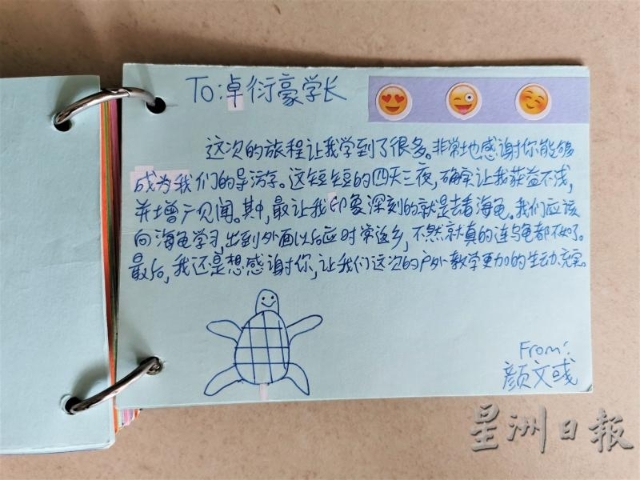 To:卓衍豪学长
这次的旅程让我学到了很多。非常也感谢你能够
成为我们的导游字。这短短的四天三夜,确实让我获益不浅,
并增广见闻。其中,最让我印象深刻的就是去看海龟。我们应该
向海龟学习,出到外面以后应时常返乡,不然就真的连乌龟都不如了。
最后,我还是想感谢你,让我们这次的户外教学更加的生动充实。
From:
颜文彧
星洲日报